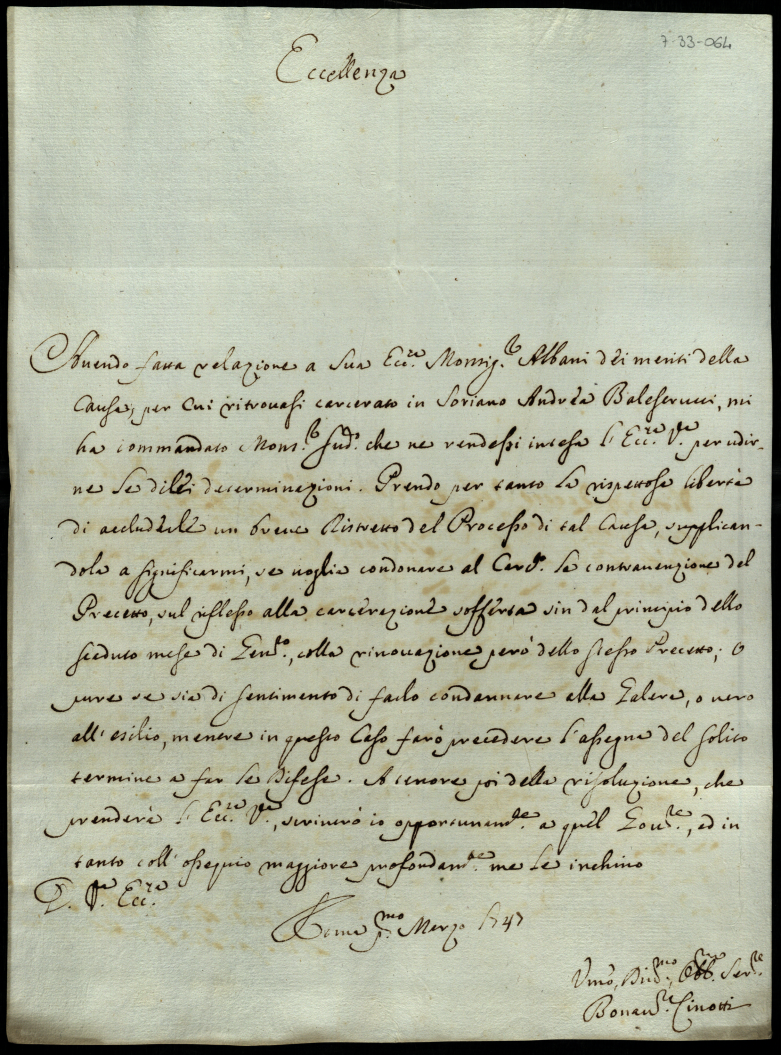 7-33-064
Eccellenza
Avendo fatta relazione a Sua Ecc.za Monsig.r Albani dei meriti della
Causa, per cui ritrovasi carcerato in Soriano Andrea Baleserucci, mi
ha commandato Mons.r Sud.o che ne rendessi intesa l'Ecc.za V.ra per udir-
ne le di lei determinazioni. Prendo per tanto la rispettosa libertà
di accluderle un breve Ristretto del Processo di tal Causa, supplican-
dola a significarmi, se voglia condonare al Carc.o la contravenzione del
Precetto, sul riflesso alla carcerazione sofferta sin dal principio dello
scaduto mese di Gen.ro, colla rinovazione però dello stesso Precetto; o
pure se sia di sentimento di farlo condannare alla Galera, o vero
all'esilio, mentre in questo Caso farò precedere l'assegna del solito
termine a far le Difese. A tenore poi della risoluzione, che
prenderà l'Ecc.za V.ra, scriverò io opportunam.te a quel Gov.re, ed in
tanto coll'ossequio maggiore profondam.te me le inchino
D. V.ra Ecc.za
Roma p.mo Marzo 1747
Umo, Div.mo, Obb.mo Ser.re
Bonav.ra Cinotti